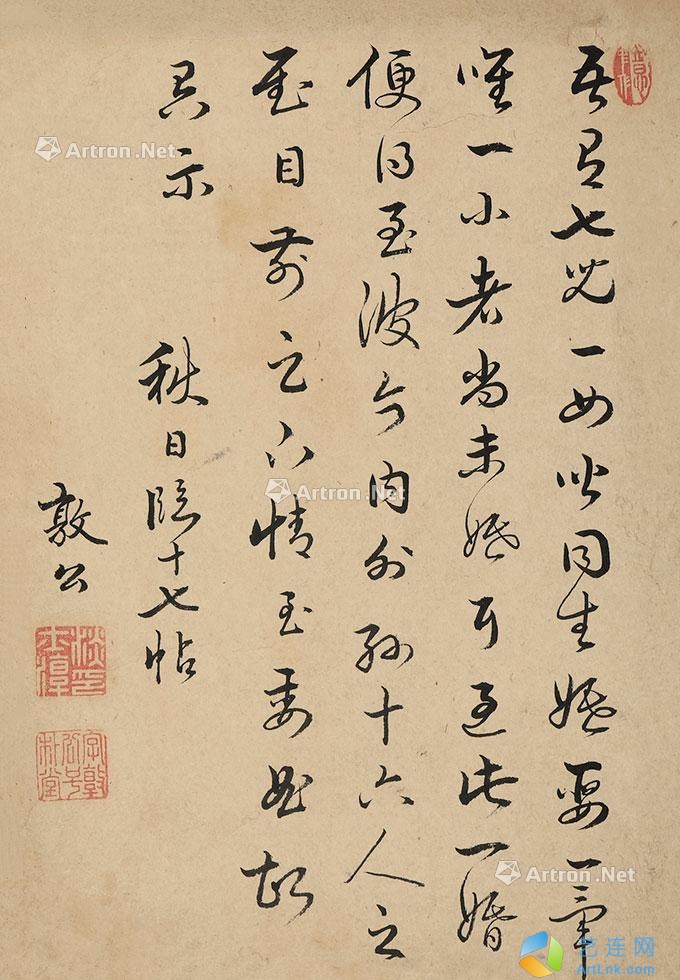 吾有七兒一女皆同生婚娶一畢
唯一小者尚未婚耳過此一婚
便得至彼今內外孫十六人足
慰目前足下情至委曲故
具示
秋日臨十七帖
敦公
Artron.Net
Artron.Net
Artron.Net
艺连网
ArtLnk.com